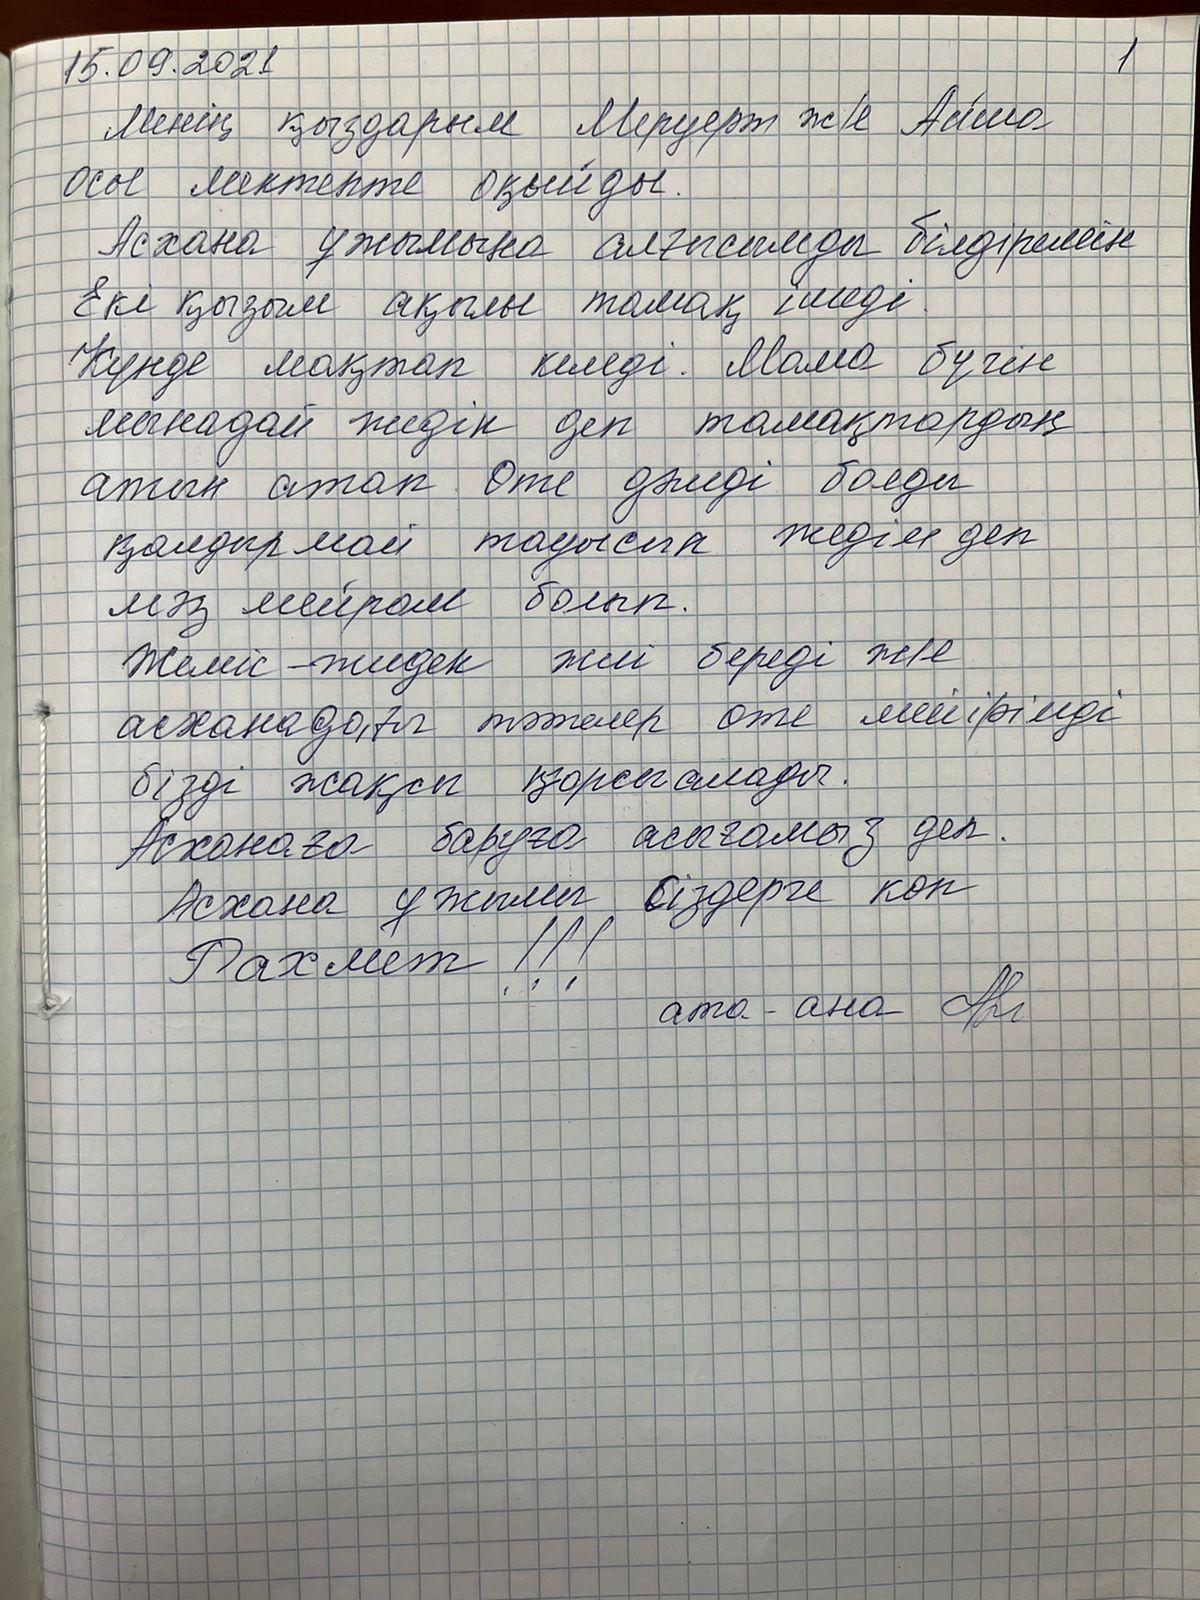 15.09.2021 1
Менің қыздарым Меруерт ж/е Айша
осы мектепте оқыйды.
Асхана ұжымына алғысымды білдіремін
Екі қызым ақылы тамақ ішеді.
Күнде мақтап келеді. Мама бүгін
мынадай жедік деп тамақтардың
атын атап. Өте дәмді болды
қалдырмай тауысып жедім деп
мәз мейрам болып.
Жеміс-жидек жиі береді ж/е
асханадағы тәтелер өте мейірімді
бізді жақсы қарсы алады.
Асханаға баруға асығамыз деп.
Асхана ұжымы сіздерге көп
Рахмет!!!
ата-ана